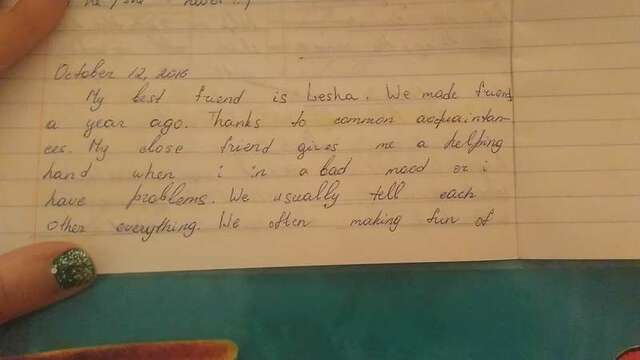 October 12, 2016
My best friend is Lesha. We made friend
a year ago. Thanks to common acquaintan-
ces. My close friend gives me a helping
hand when i in a bad mood or i
have problems. We usually tell each
other everything. We often making fun of